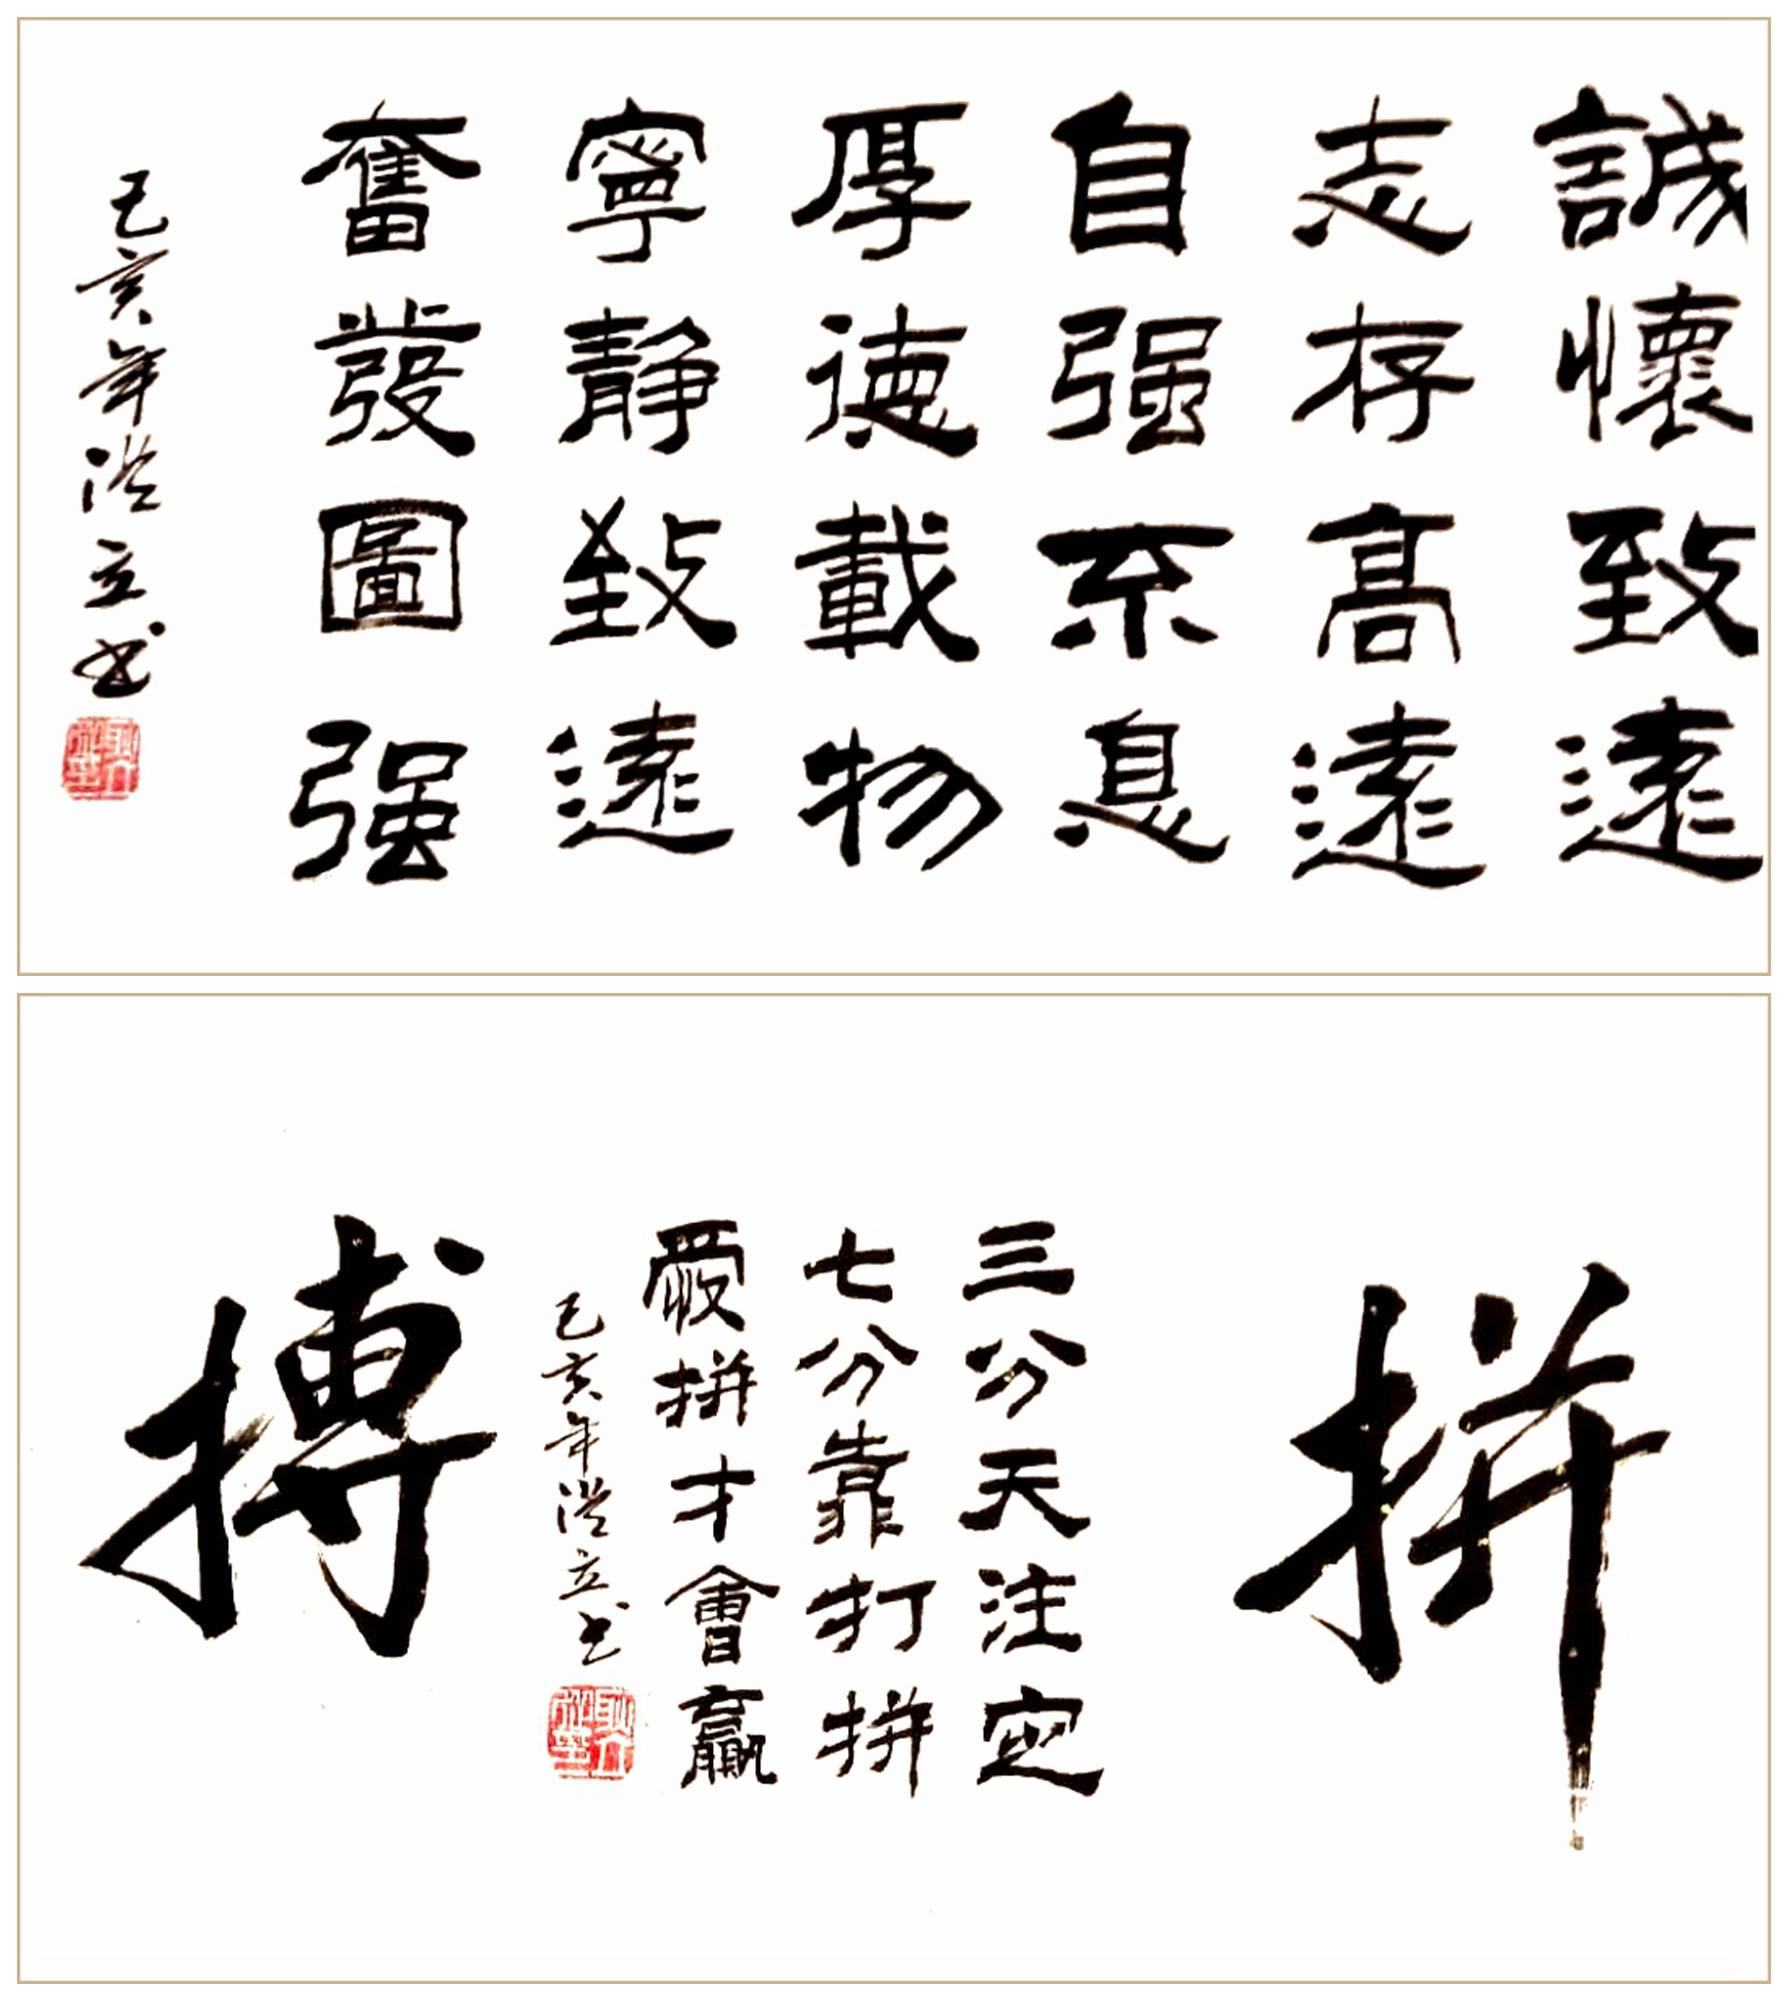 誠懷致遠
志存高遠
自强不息
厚德載物
寧静致遠
奮發圖强
己亥年洪立书
拼
三分天注定
七分靠打拼
愛拼才會贏
己亥年洪立书
搏